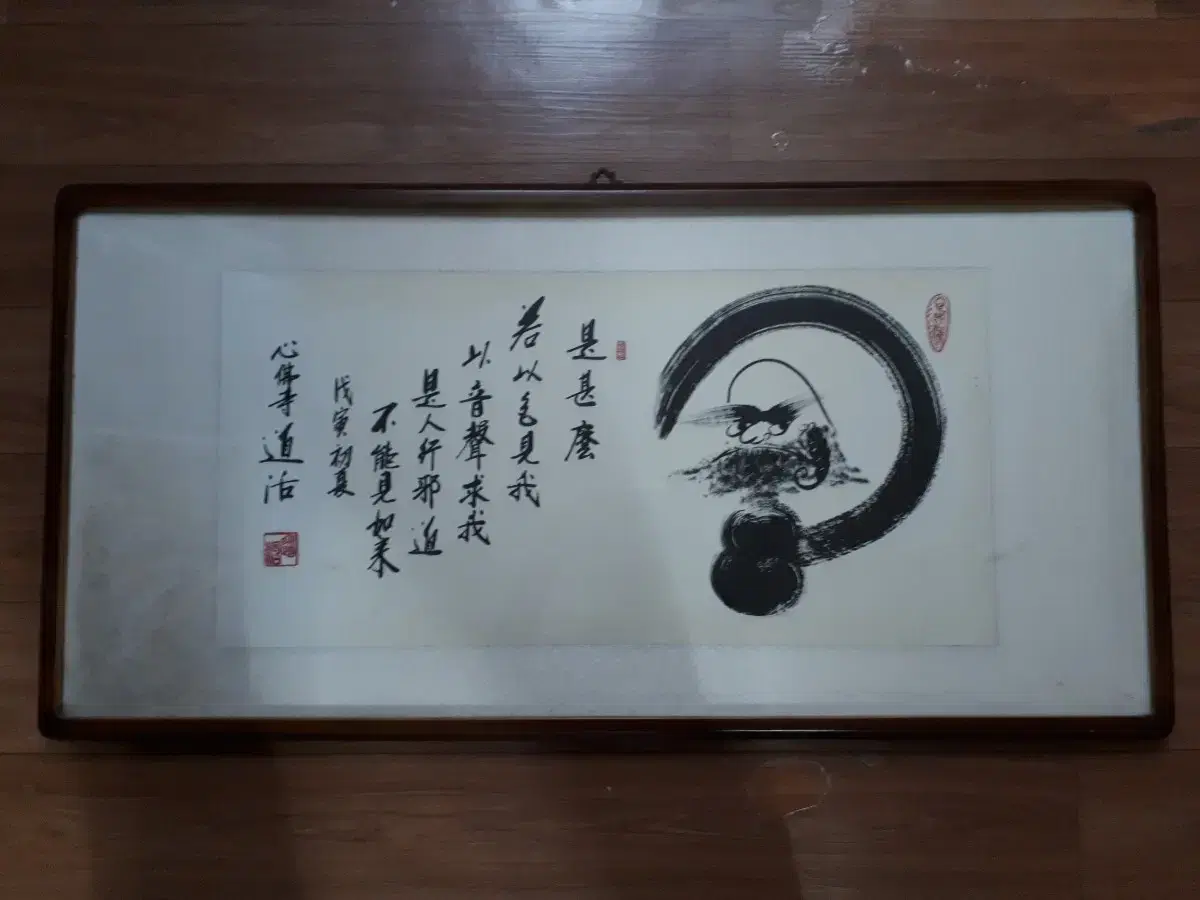 是甚麽
若以色見我
以音聲求我
是人行邪道
不能見如来
戊寅初夏
心佛寺
道活